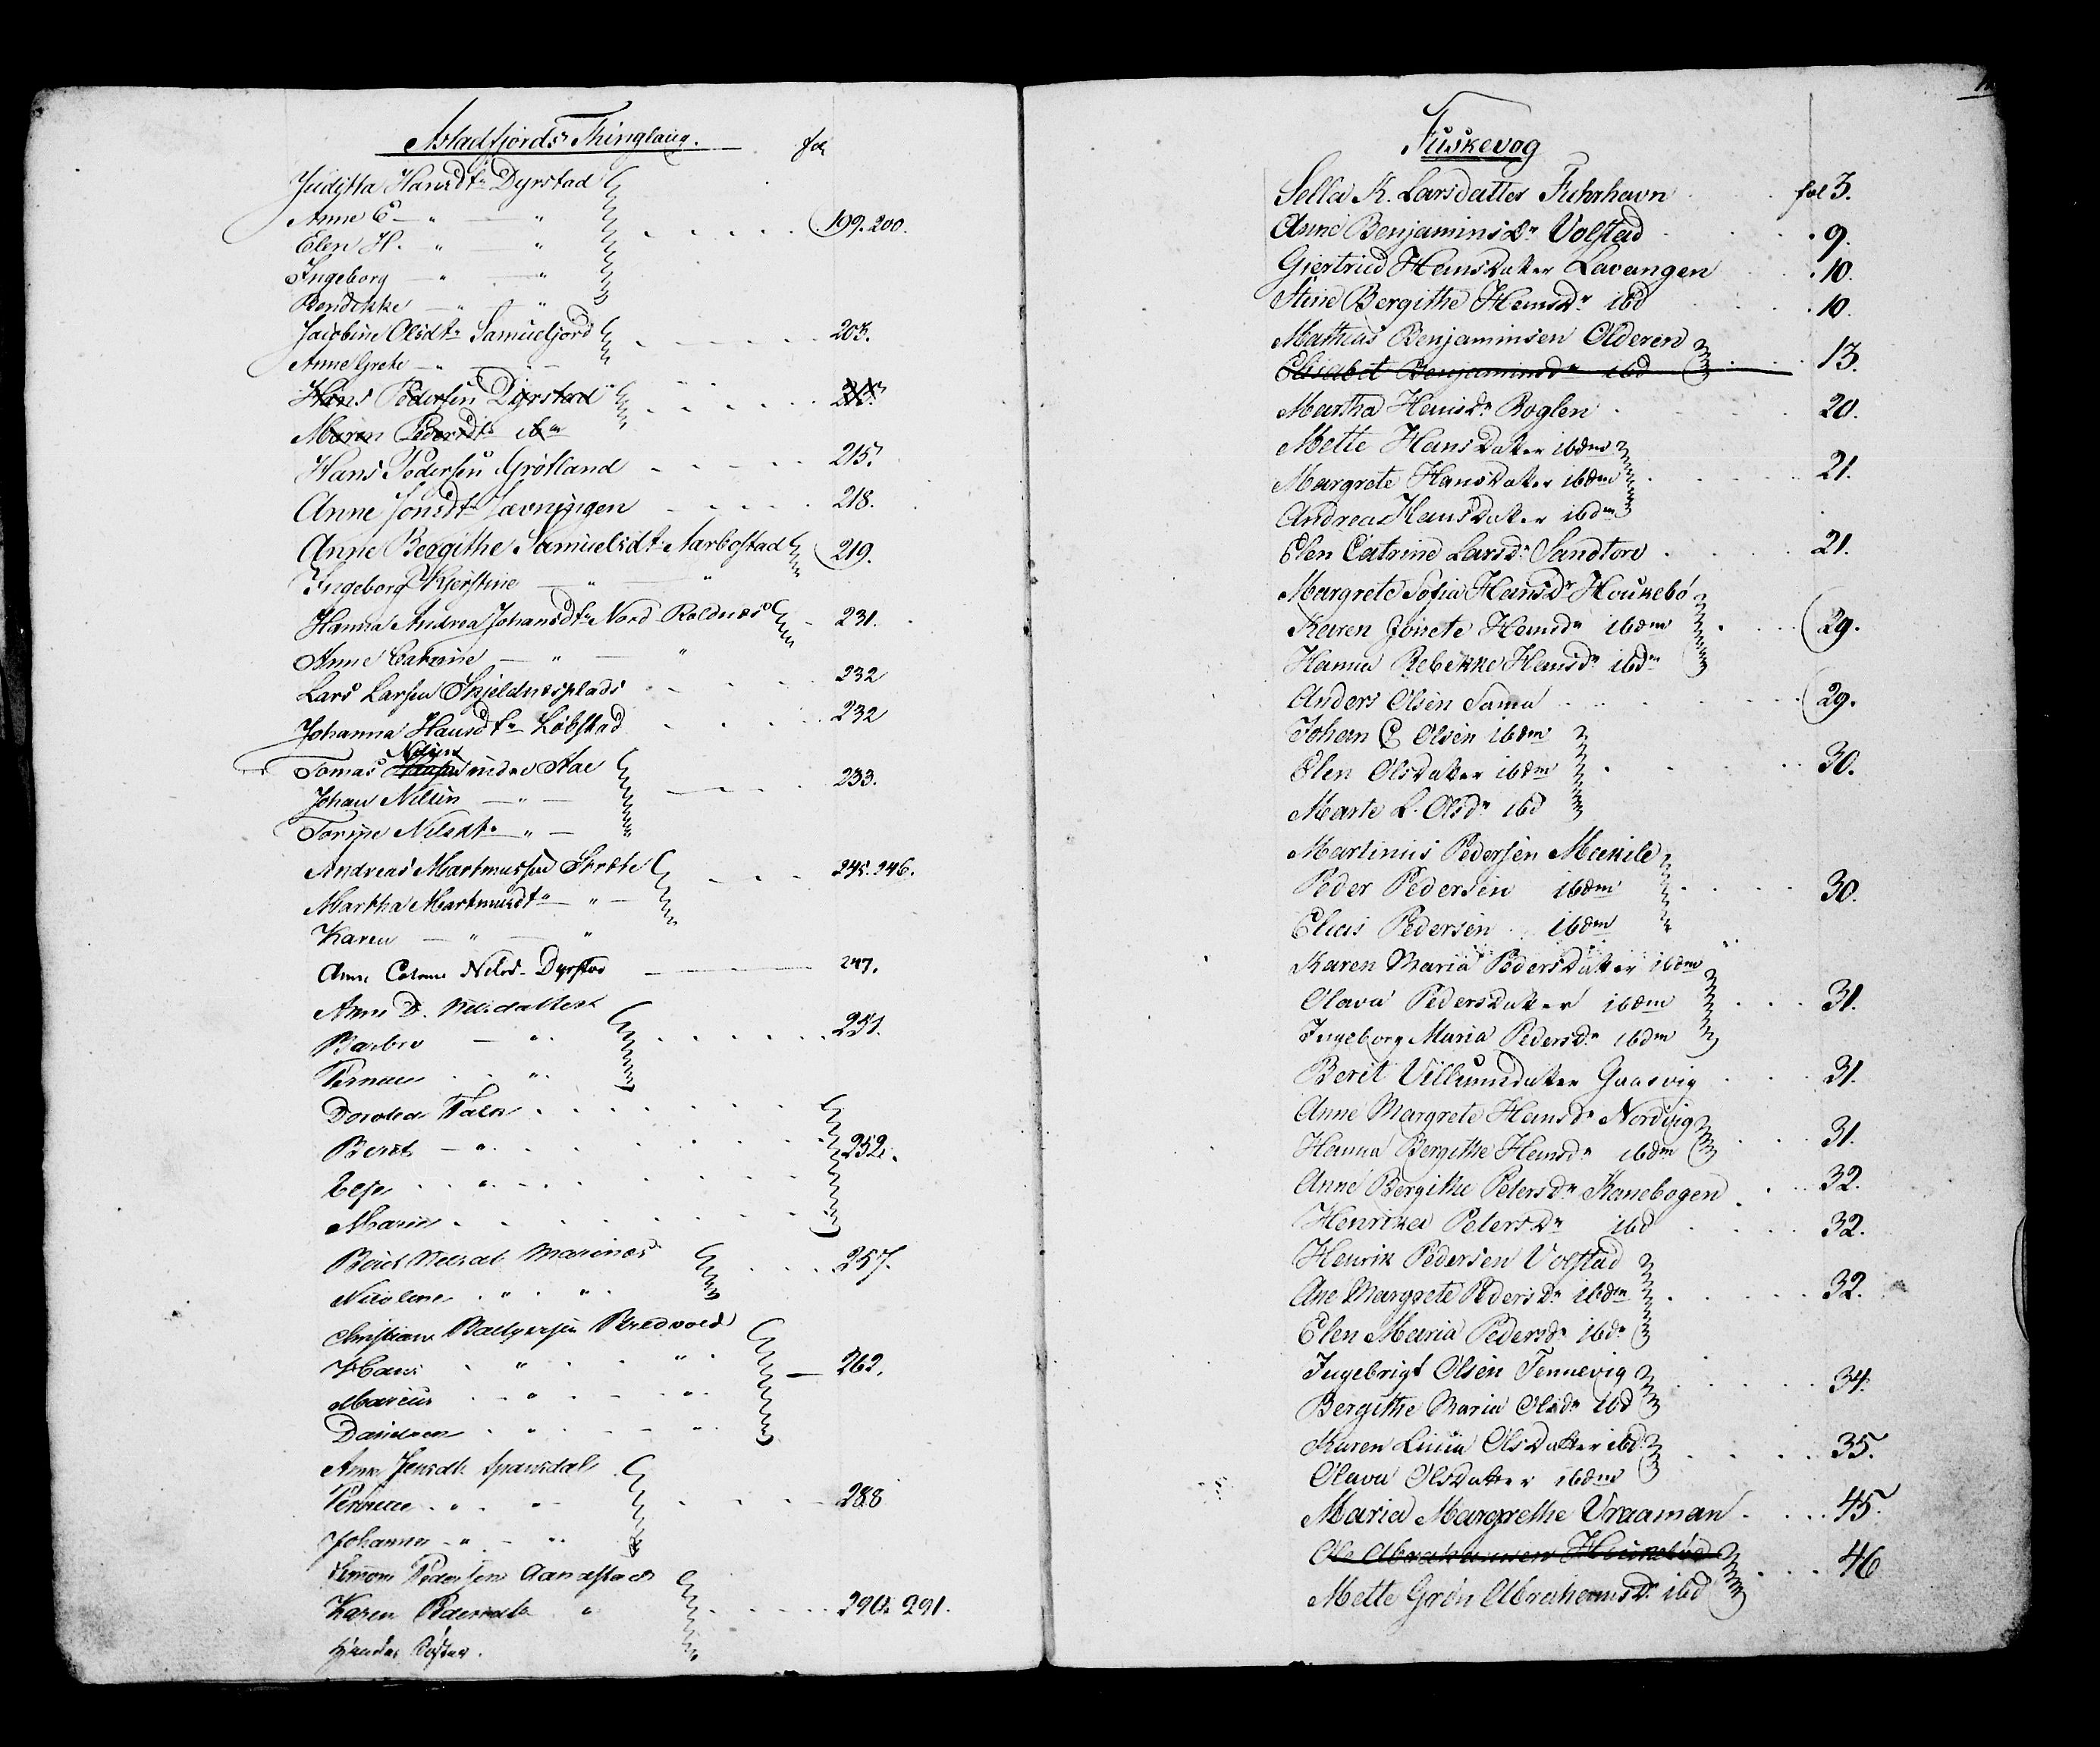 Astadfjords Thinglaug. fol
Juditta Hansdtr Dyrstad
Anne E — " — "
199. 200.
Elen H. " "
Ingeborg — " — "
Bendikke — " — "
Jacobine Olsdtr Samuefjord 203.
Anne Grete — " —
Hans Pedersen Dyrstad 213.
Maren Pedersdtr ibm
Hans Pedersen Grotland 215.
Anne Jonsdtr Lævningen 218.
Anne Bergithe Samuelsdtr Aarbostad 219.
Ingeborg Kjerstine — " — "
Hanna Andrea Johansdtr Nord Roldnæs 231.
Anne Catrine — " — "
Lars Larsen Skjeldnesplads 232
Johanna Hansdtr Løbstad 232
Nilsen
Tomas indre Aae
Johan Nilsen — " — 233.
Torine Nilsdtr " —
Andreas Martinussen Skrole 245. 246.
Martha Martinusdtr — " —
Karen — " — "
Ane Catrine Nilsd. Dyrstad — 247.
Anne D. Nilsdatter
Barbro — " 251.
Pernane "
Dorothea Falk
Berit — " 252.
Else "
Maria
Berit Nilsdt. Marinæs 257.
Nicoline " "
Christian Balgersen Bredvold
Hans " " 262.
Marcus " "
Danielsen " "
Anne Jensdtr Spansdal
Pernille " " 288
Johanna " "
Simon Pedersen Aanestad
Karen Pedersdtr " 290. 291.
Peder
Fuskevog
Sella K. Larsdatter Fuhrhavn fol 3.
Anne Benjaminsdr Volstad 9.
Giertrud Hansdatter Lavangen 10.
Stine Bergithe Hansdr ibd 10.
Mathias Benjaminsen Olderen 13.
Elisabet Benjaminsdr ibd
Martha Hansdr Boglen 20.
Mette Hansdatter ibdm
Margrete Hansdatter ibdm 21.
Andrea Hansdatter ibdm
Elen Catrine Larsdr Sandtorv 21.
Margrete Sofia Hansdr Houkebø
Karen Jonete Hansdr ibdm 29.
Hanna Rebekke Hansdr ibdm
Anders Olsen Sama 29.
Johan C Olsen ibdm
Elen Olsdatter ibdm 30.
Marte L. Olsdr ibd
Martinus Pedersen Mækile
Peder Pedersen ibdm 30.
Elias Pedersen ibdm
Karen Maria Pedersdatter ibdm
Olava Pedersdatter ibdm 31.
Ingeborg Maria Pedersdr ibdm
Berit Villumsdatter Gaasvig 31.
Anne Margrete Hansdr Nordvig
Hanna Bergithe Hansdr ibdm 31.
Anne Bergithe Petersdr Kanebogen 32.
Henrika Petersdr ibd 32.
Henrik Pedersen Volstad
Ane Margrete Pedersdr ibdm 32.
Elen Maria Pedersdr ibdr
Ingebrigt Olsen Tennevig 34.
Bergithe Maria Olsdr ibd
Karen Lucia Olsdatter ibd 35.
Olava Olsdatter ibdm
Maria Margrethe Vraaman 45.
Ole Abrahamsen Houkebø 46
Mette Grøn Abrahamsdr ibd